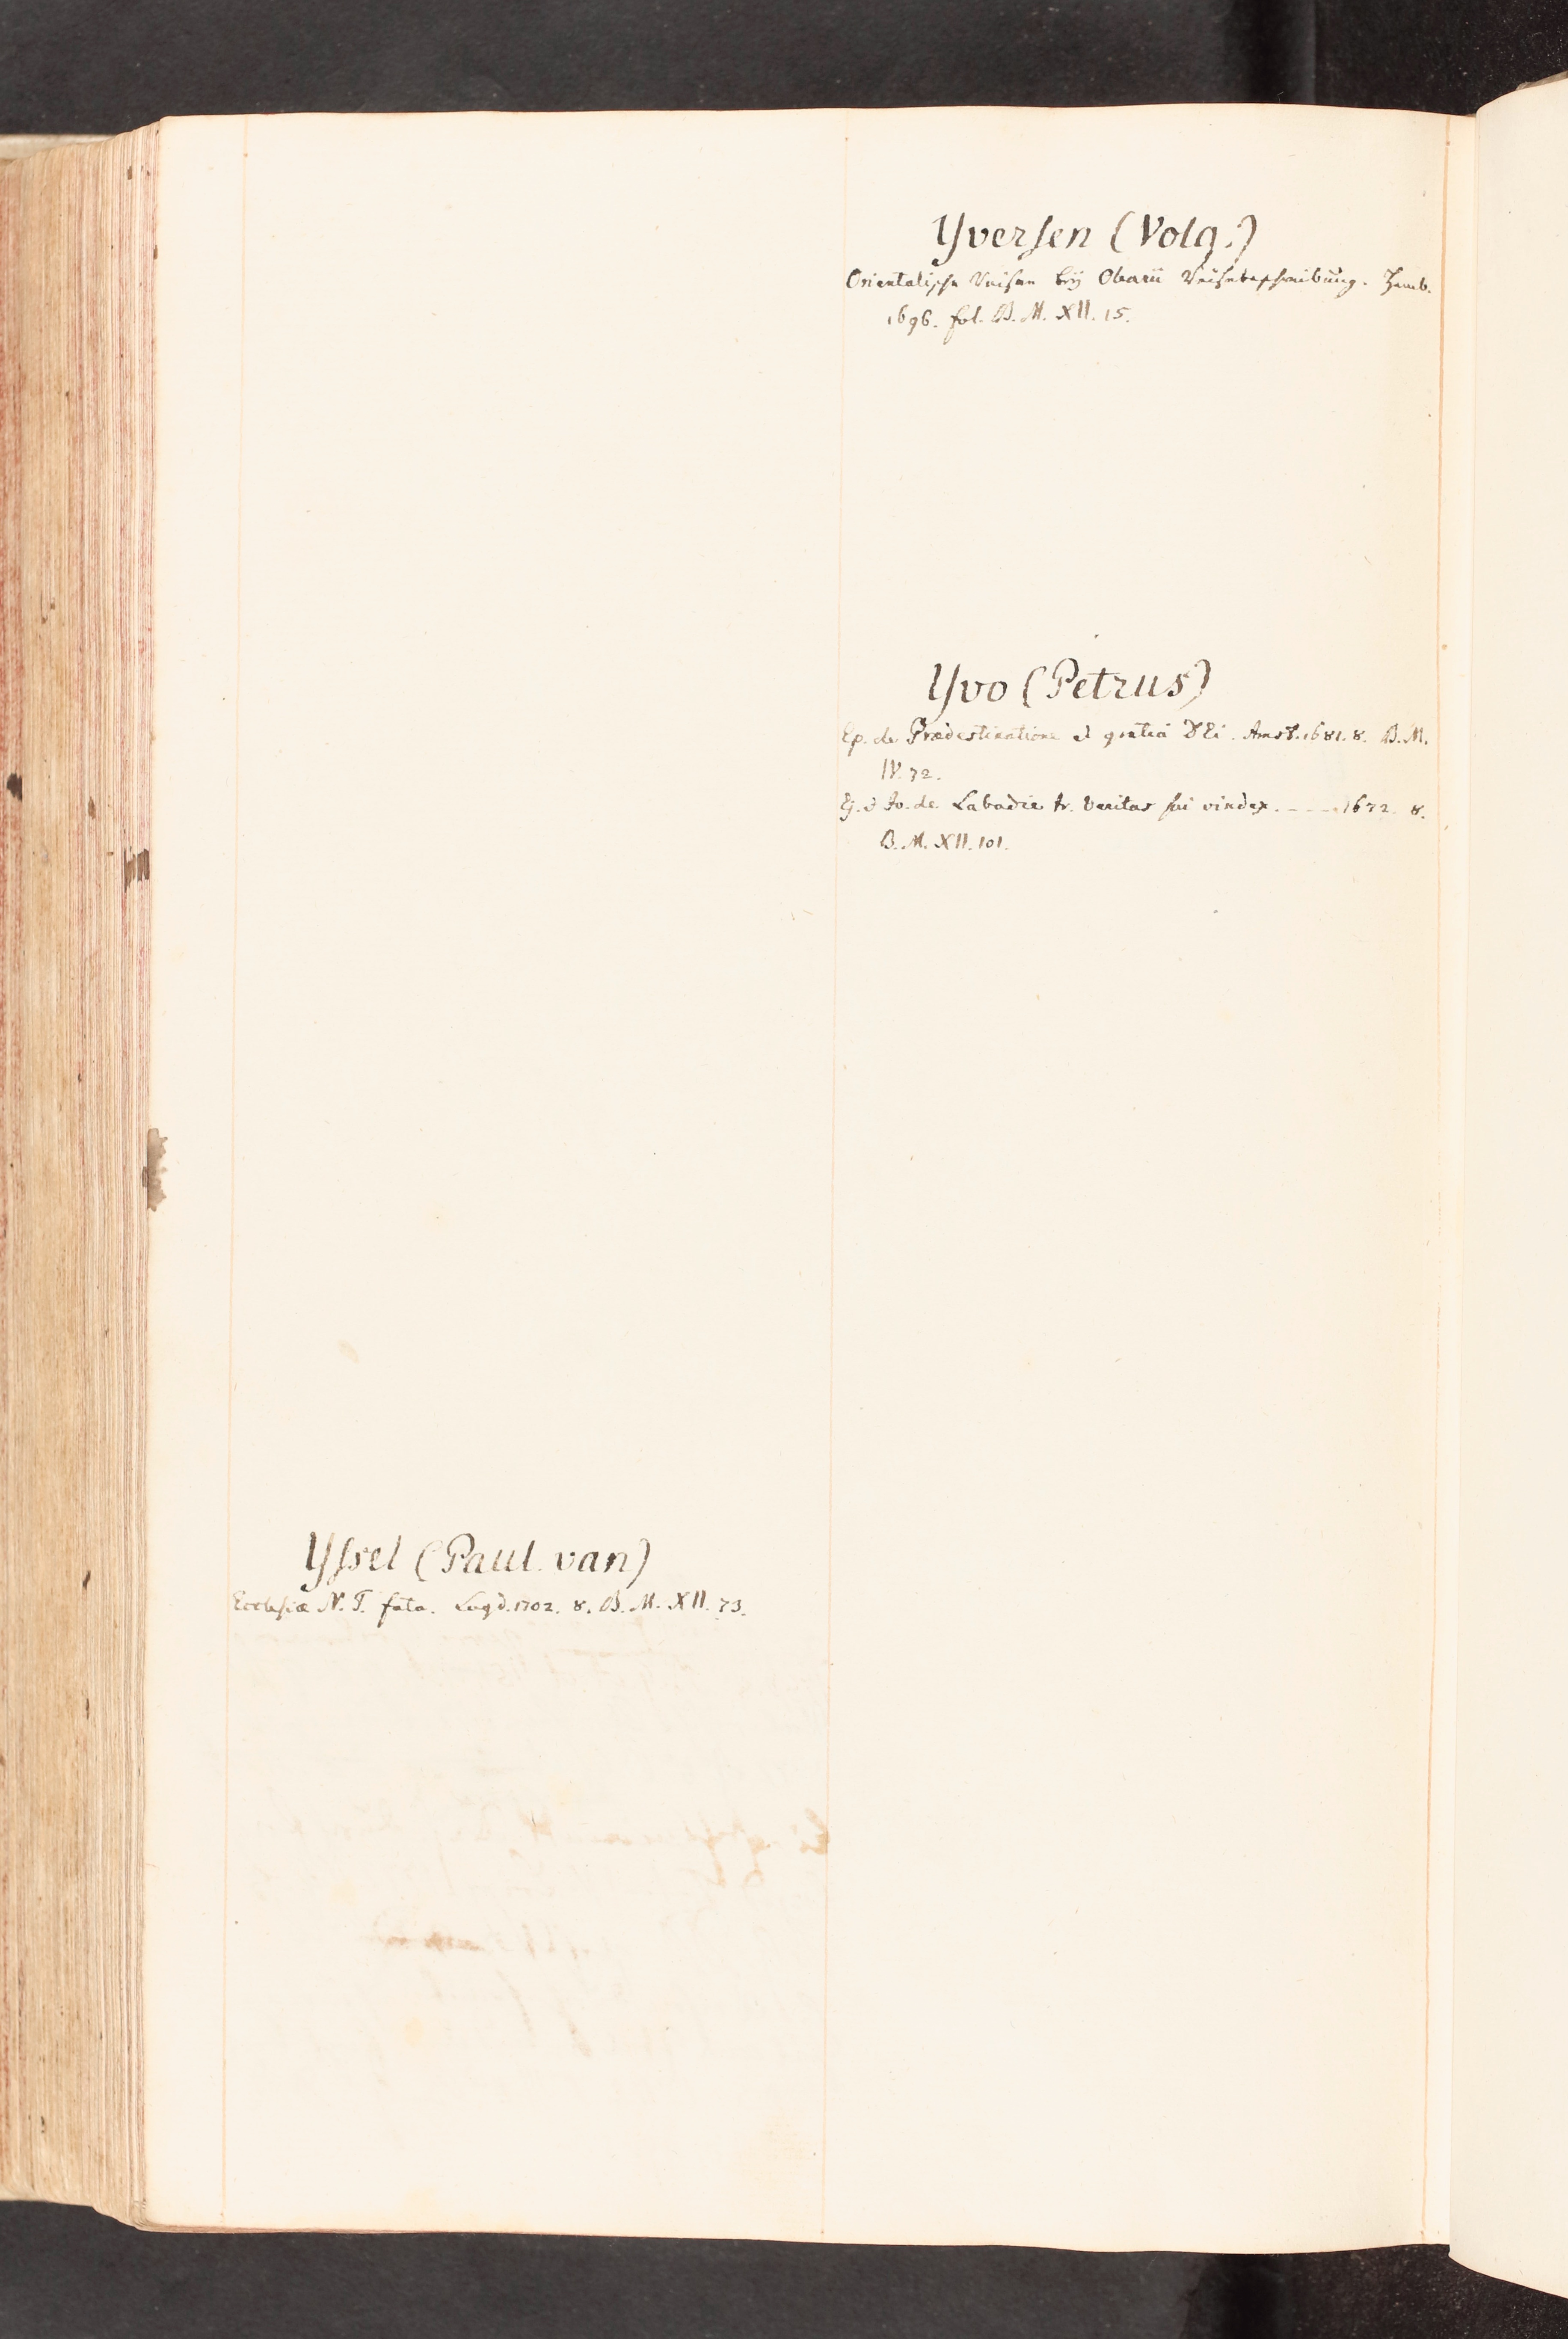 Yssel (Paul. van)
Ecclesiæ N. T. fata. Lugd. 1702. 8. B. M. XII. 73.
Yversen (Volq.)
Orientalische Reisen bey Olearii Reisebeschreibung. Hamb.
1696. fol. B. M. XII. 15.
Yvo (Petrus)
Ep. de Prædestinatione et gratia DEi. Amst. 1681. 8. B. M.
IV. 72.
Ej. & Jo. de Labadie tr. Veritas sui vindex. - - - - 1672. 8.
B. M. XII. 101.